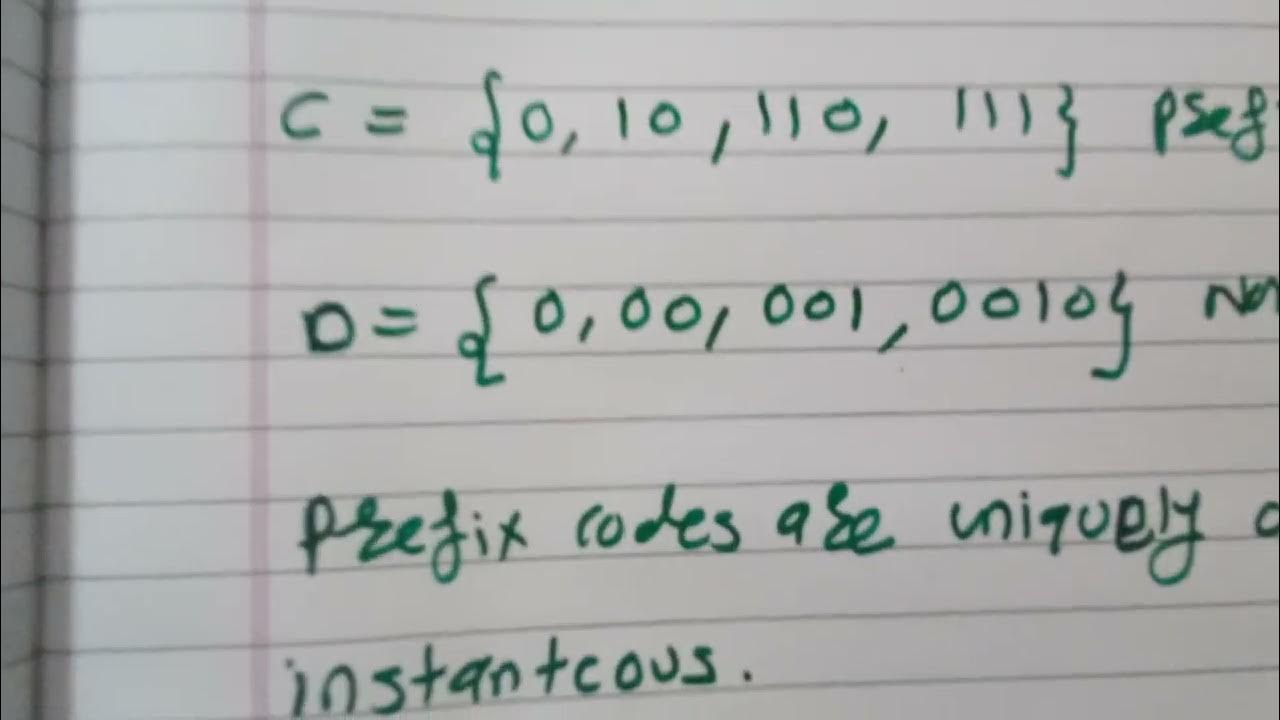 C = {0, 10, 110, 111} pref
D = {0, 00, 001, 0010} No
prefix codes are uniquely
instanteous.